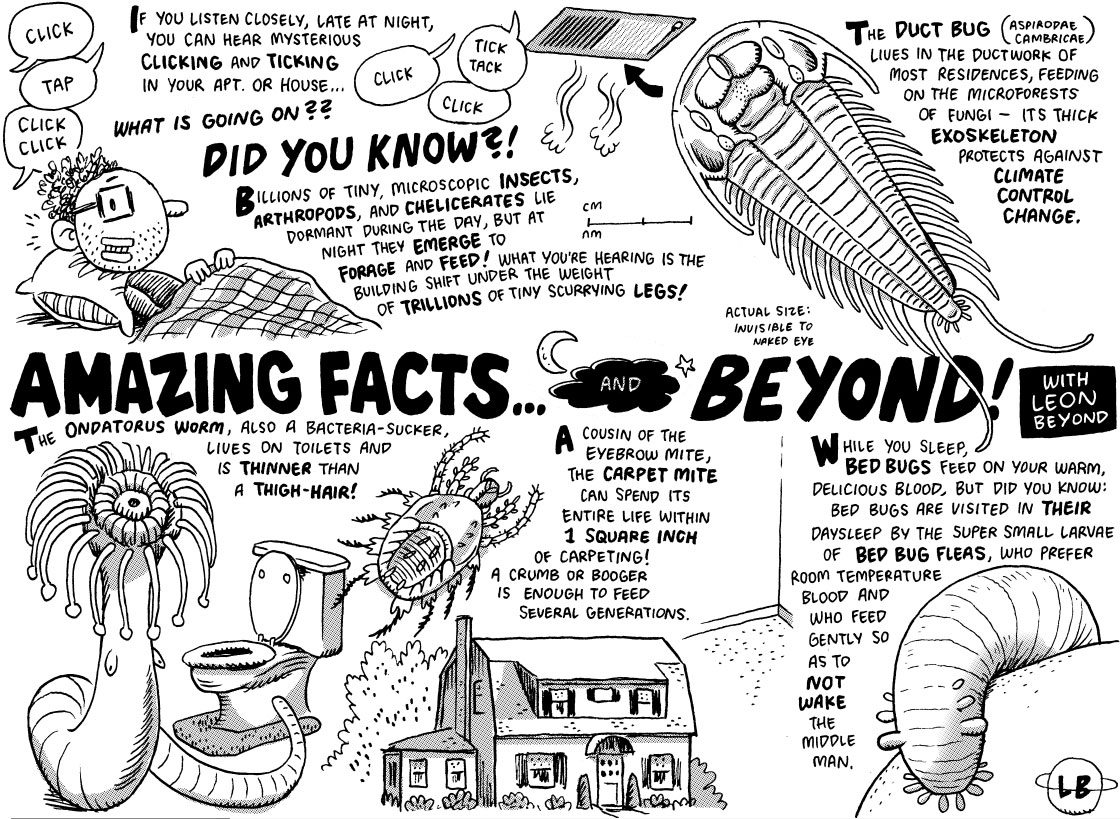 CLICK
TAP
CLICK
CLICK
IF YOU LISTEN CLOSELY, LATE AT NIGHT,
YOU CAN HEAR MYSTERIOUS
CLICKING AND TICKING
IN YOUR APT. OR HOUSE...
WHAT IS GOING ON??
CLICK
TICK
TACK
CLICK
DID YOU KNOW?!
BILLIONS OF TINY, MICROSCOPIC INSECTS,
ARTHROPODS, AND CHELICERATES LIE
DORMANT DURING THE DAY, BUT AT
NIGHT THEY EMERGE TO
FORAGE AND FEED! WHAT YOU'RE HEARING IS THE
BUILDING SHIFT UNDER THE WEIGHT
OF TRILLIONS OF TINY SCURRYING LEGS!
cm
nm
THE DUCT BUG (ASPIRODAE CAMBRICAE)
LIVES IN THE DUCTWORK OF
MOST RESIDENCES, FEEDING
ON THE MICROFORESTS
OF FUNGI – ITS THICK
EXOSKELETON
PROTECTS AGAINST
CLIMATE
CONTROL
CHANGE.
ACTUAL SIZE:
INVISIBLE TO
NAKED EYE
AMAZING FACTS... AND BEYOND!
WITH
LEON
BEYOND
THE ONDATORUS WORM, ALSO A BACTERIA-SUCKER,
LIVES ON TOILETS AND
IS THINNER THAN
A THIGH-HAIR!
A COUSIN OF THE
EYEBROW MITE,
THE CARPET MITE
CAN SPEND ITS
ENTIRE LIFE WITHIN
1 SQUARE INCH
OF CARPETING!
A CRUMB OR BOOGER
IS ENOUGH TO FEED
SEVERAL GENERATIONS.
WHILE YOU SLEEP,
BED BUGS FEED ON YOUR WARM,
DELICIOUS BLOOD, BUT DID YOU KNOW:
BED BUGS ARE VISITED IN THEIR
DAYSLEEP BY THE SUPER SMALL LARVAE
OF BED BUG FLEAS, WHO PREFER
ROOM TEMPERATURE
BLOOD AND
WHO FEED
GENTLY SO
AS TO
NOT
WAKE
THE
MIDDLE
MAN.
LB